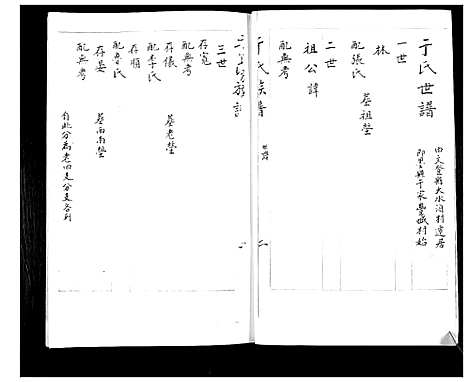 于氏世譜
由文登縣大水泊村遷居
即墨縣于家甃城村始
一世
林
配張氏 葬祖塋
二世
祖公諱
配無考
于氏族譜
世譜
二
三世
存寬
配無考
存儀 葬老塋
配李氏
存順
配魯氏
存晏 葬南南塋
自此分為老四支分支各列